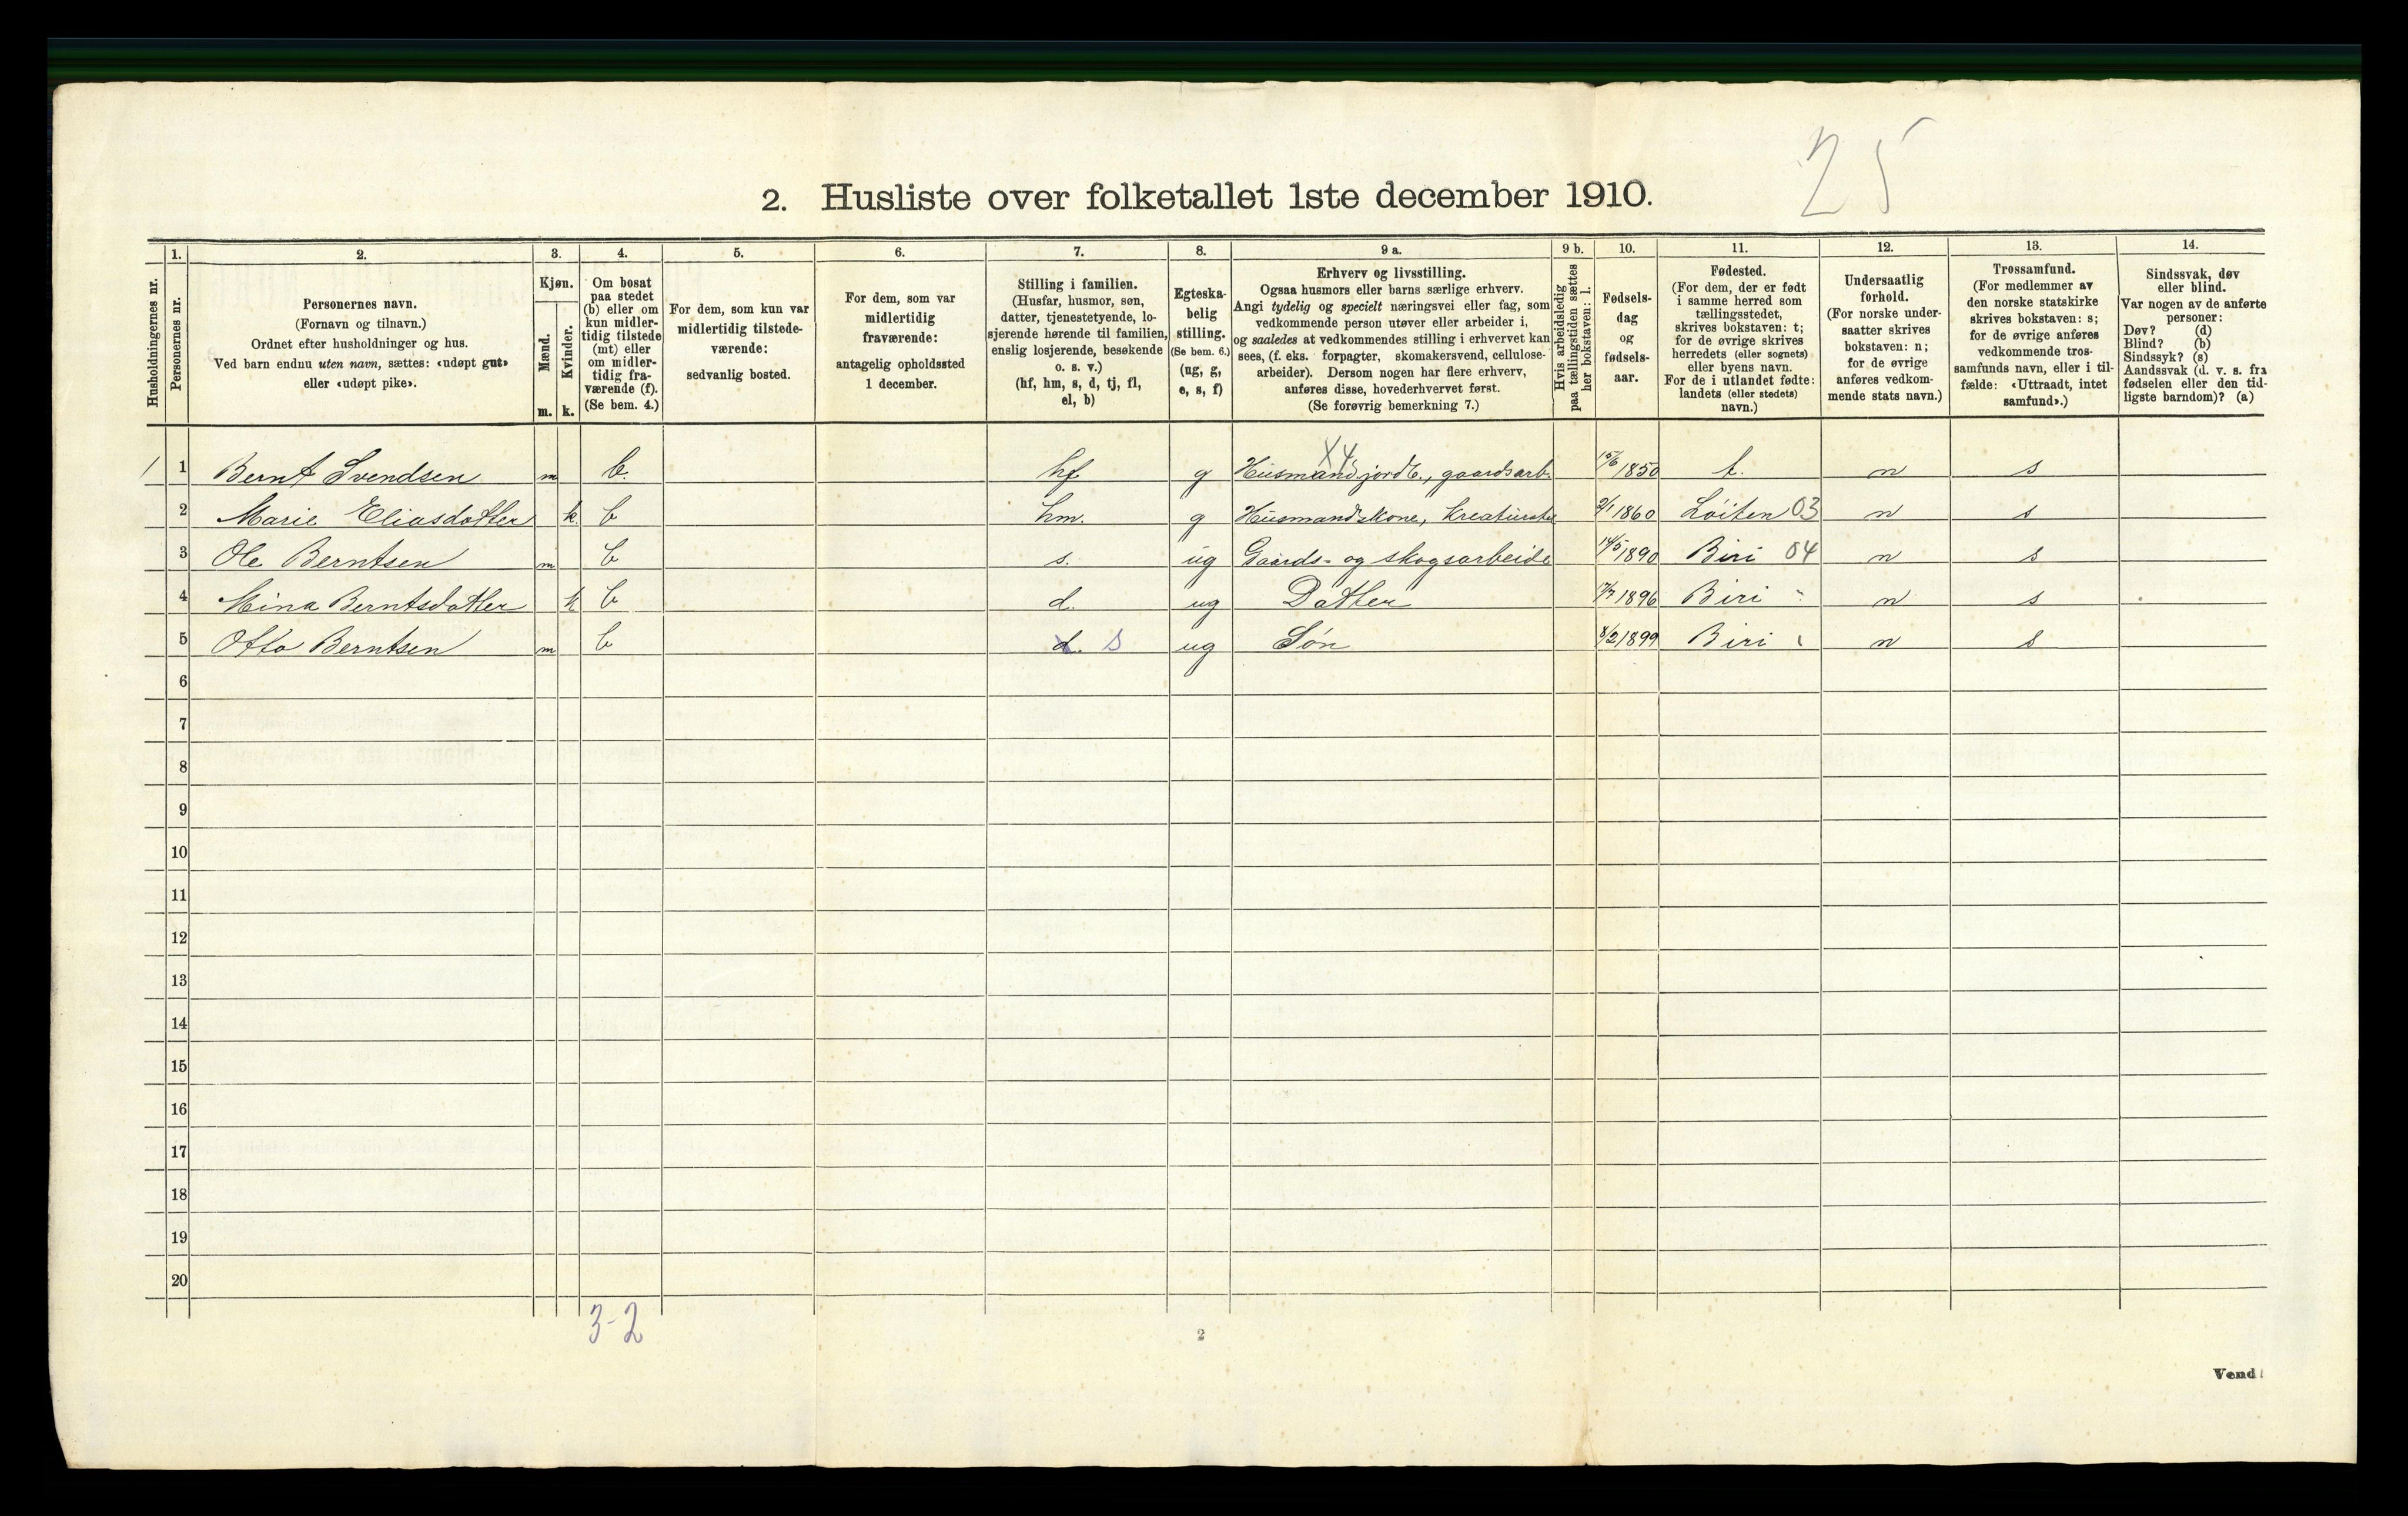 25
2. Husliste over folketallet 1ste december 1910.
Husholdningernes nr.
1.
Personernes nr.
2.
Personernes navn.
(Fornavn og tilnavn.)
Ordnet efter husholdninger og hus.
Ved barn endnu uten navn, sættes: «udøpt gut»
eller «udøpt pike».
3.
Kjøn.
Mænd.
m.
Kvinder.
k.
4.
Om bosat
paa stedet
(b) eller om
kun midler-
tidig tilstede
(mt) eller
om midler-
tidig fra-
værende (f).
(Se bem. 4.)
5.
For dem, som kun var
midlertidig tilstede-
værende:
sedvanlig bosted.
6.
For dem, som var
midlertidig
fraværende:
antagelig opholdssted
1 december.
7.
Stilling i familien.
(Husfar, husmor, søn,
datter, tjenestetyende, lo-
sjerende hørende til familien,
enslig losjerende, besøkende
o. s. v.)
(hf, hm, s, d, tj, fl,
el, b)
8.
Egteska-
belig
stilling.
(Se bem. 6.)
(ug, g,
e, s, f)
9 a.
Erhverv og livsstilling.
Ogsaa husmors eller barns særlige erhverv.
Angi tydelig og specielt næringsvei eller fag, som
vedkommende person utøver eller arbeider i,
og saaledes at vedkommendes stilling i erhvervet kan
sees, (f. eks. forpagter, skomakersvend, cellulose-
arbeider). Dersom nogen har flere erhverv,
anføres disse, hovederhvervet først.
(Se forøvrig bemerkning 7.)
9 b.
Hvis arbeidsledig
paa tællingstiden sættes
her bokstaven: l.
10.
Fødsels-
dag
og
fødsels-
aar.
11.
Fødested.
(For dem, der er født
i samme herred som
tællingsstedet,
skrives bokstaven: t;
for de øvrige skrives
herredets (eller sognets)
eller byens navn.
For de i utlandet fødte:
landets (eller stedets)
navn.)
12.
Undersaatlig
forhold.
(For norske under-
saatter skrives
bokstaven: n;
for de øvrige
anføres vedkom-
mende stats navn.)
13.
Trossamfund.
(For medlemmer av
den norske statskirke
skrives bokstaven: s;
for de øvrige anføres
vedkommende tros-
samfunds navn, eller i til-
fælde: «Uttraadt, intet
samfund».)
14.
Sindssvak, døv
eller blind.
Var nogen av de anførte
personer:
Døv? (d)
Blind? (b)
Sindssyk? (s)
Aandssvak (d. v. s. fra
fødselen eller den tid-
ligste barndom)? (a)
X4
1 1 Bernt Svendsen m b. hf g Husmand jordb., gaardsarb. 15/6 1850 t. n s
2 Marie Eliasdatter k. b hm. g Husmandskone, Kreaturstel 2/1 1860 Løiten 03 n s
3 Ole Berntsen m b s. ug Gaards- og skogsarbeide 14/5 1890 Biri 04 n s
4 Mina Berntsdatter k b d. ug Datter 1896 Biri " n s
5 Otto Berntsen m b d. s ug Søn 8/2 1899 Biri n s
6
7
8
9
10
11
12
13
14
15
16
17
18
19
20
3-2
2
Vend!